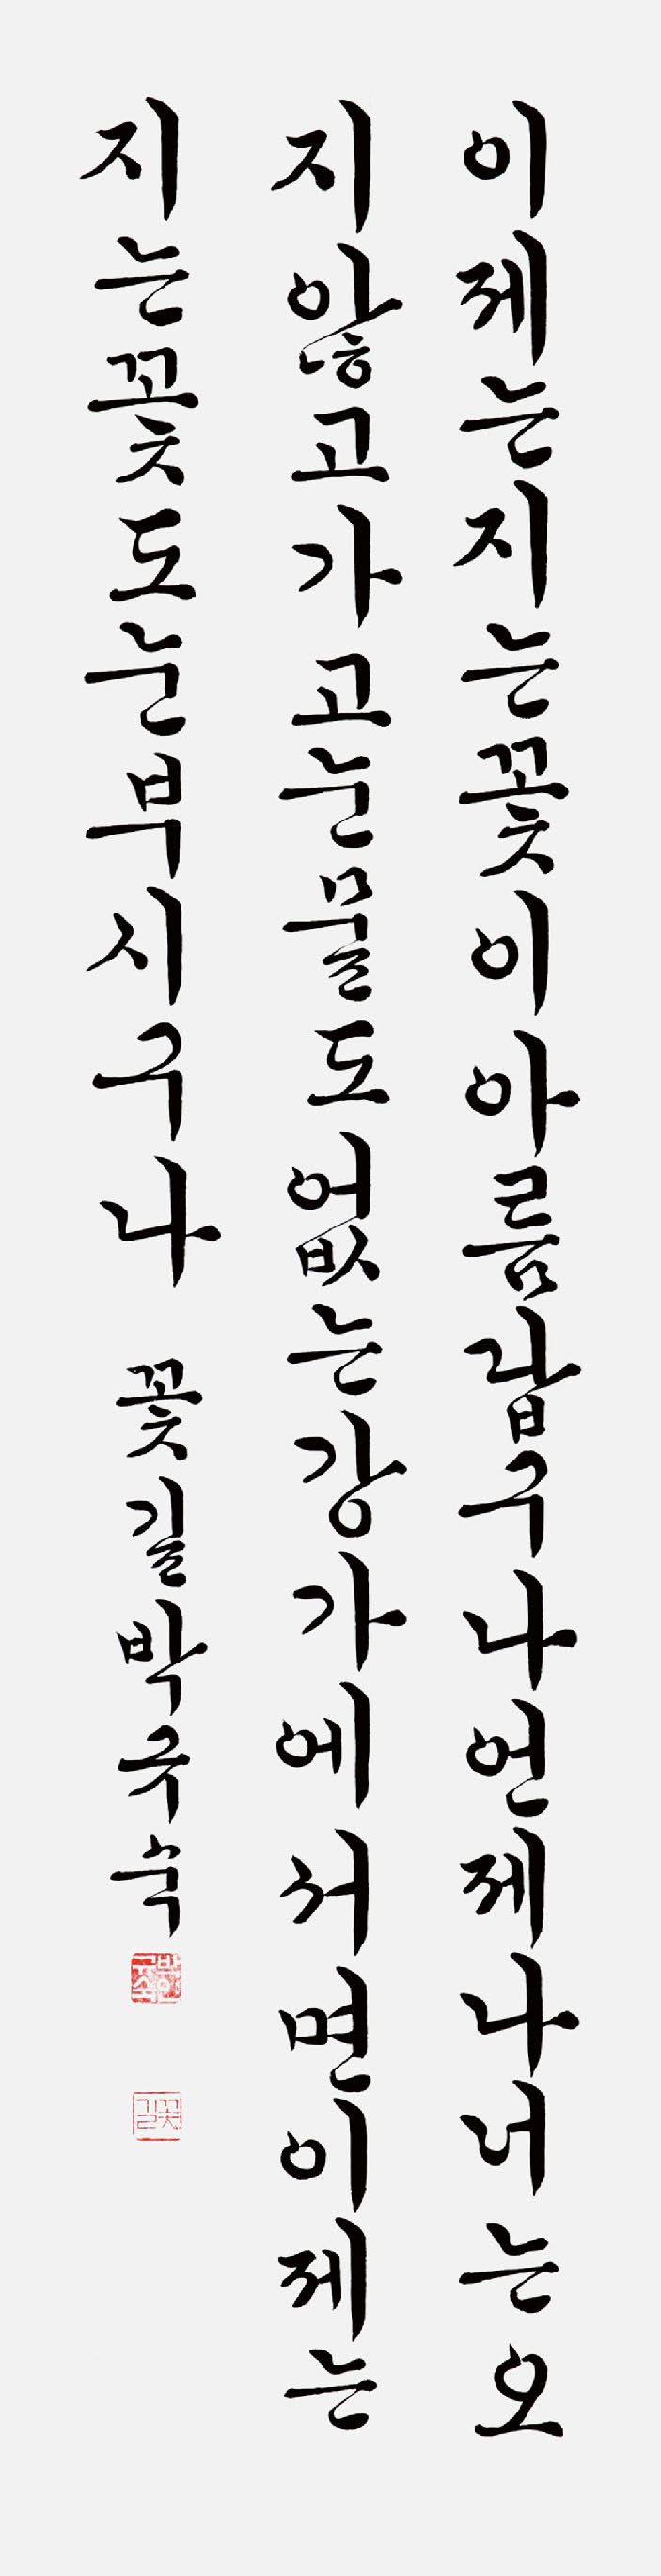 이제는지는꽃이아름답구나언제나너는오
지않고가고눈물도없는강가에서면이제는
지는꽃도눈부시구나 꽃길박규숙
박규숙
꽃길